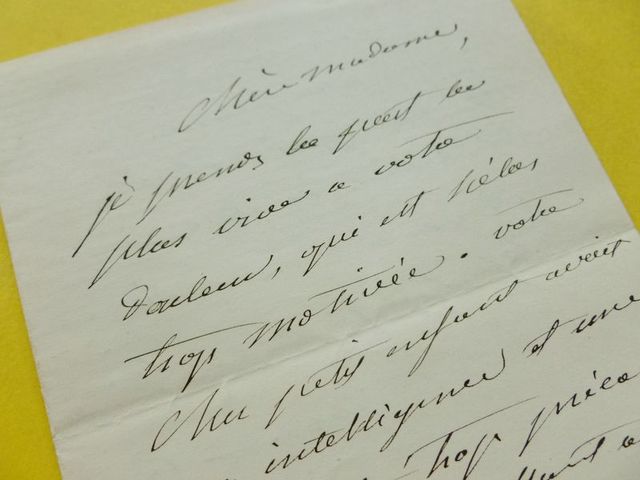 Chère madame,
je prends la part la
plus vive a votre
douleur, qui est hélas,
trop motivée. votre
cher petit enfant avait
intelligence et une
trop préco